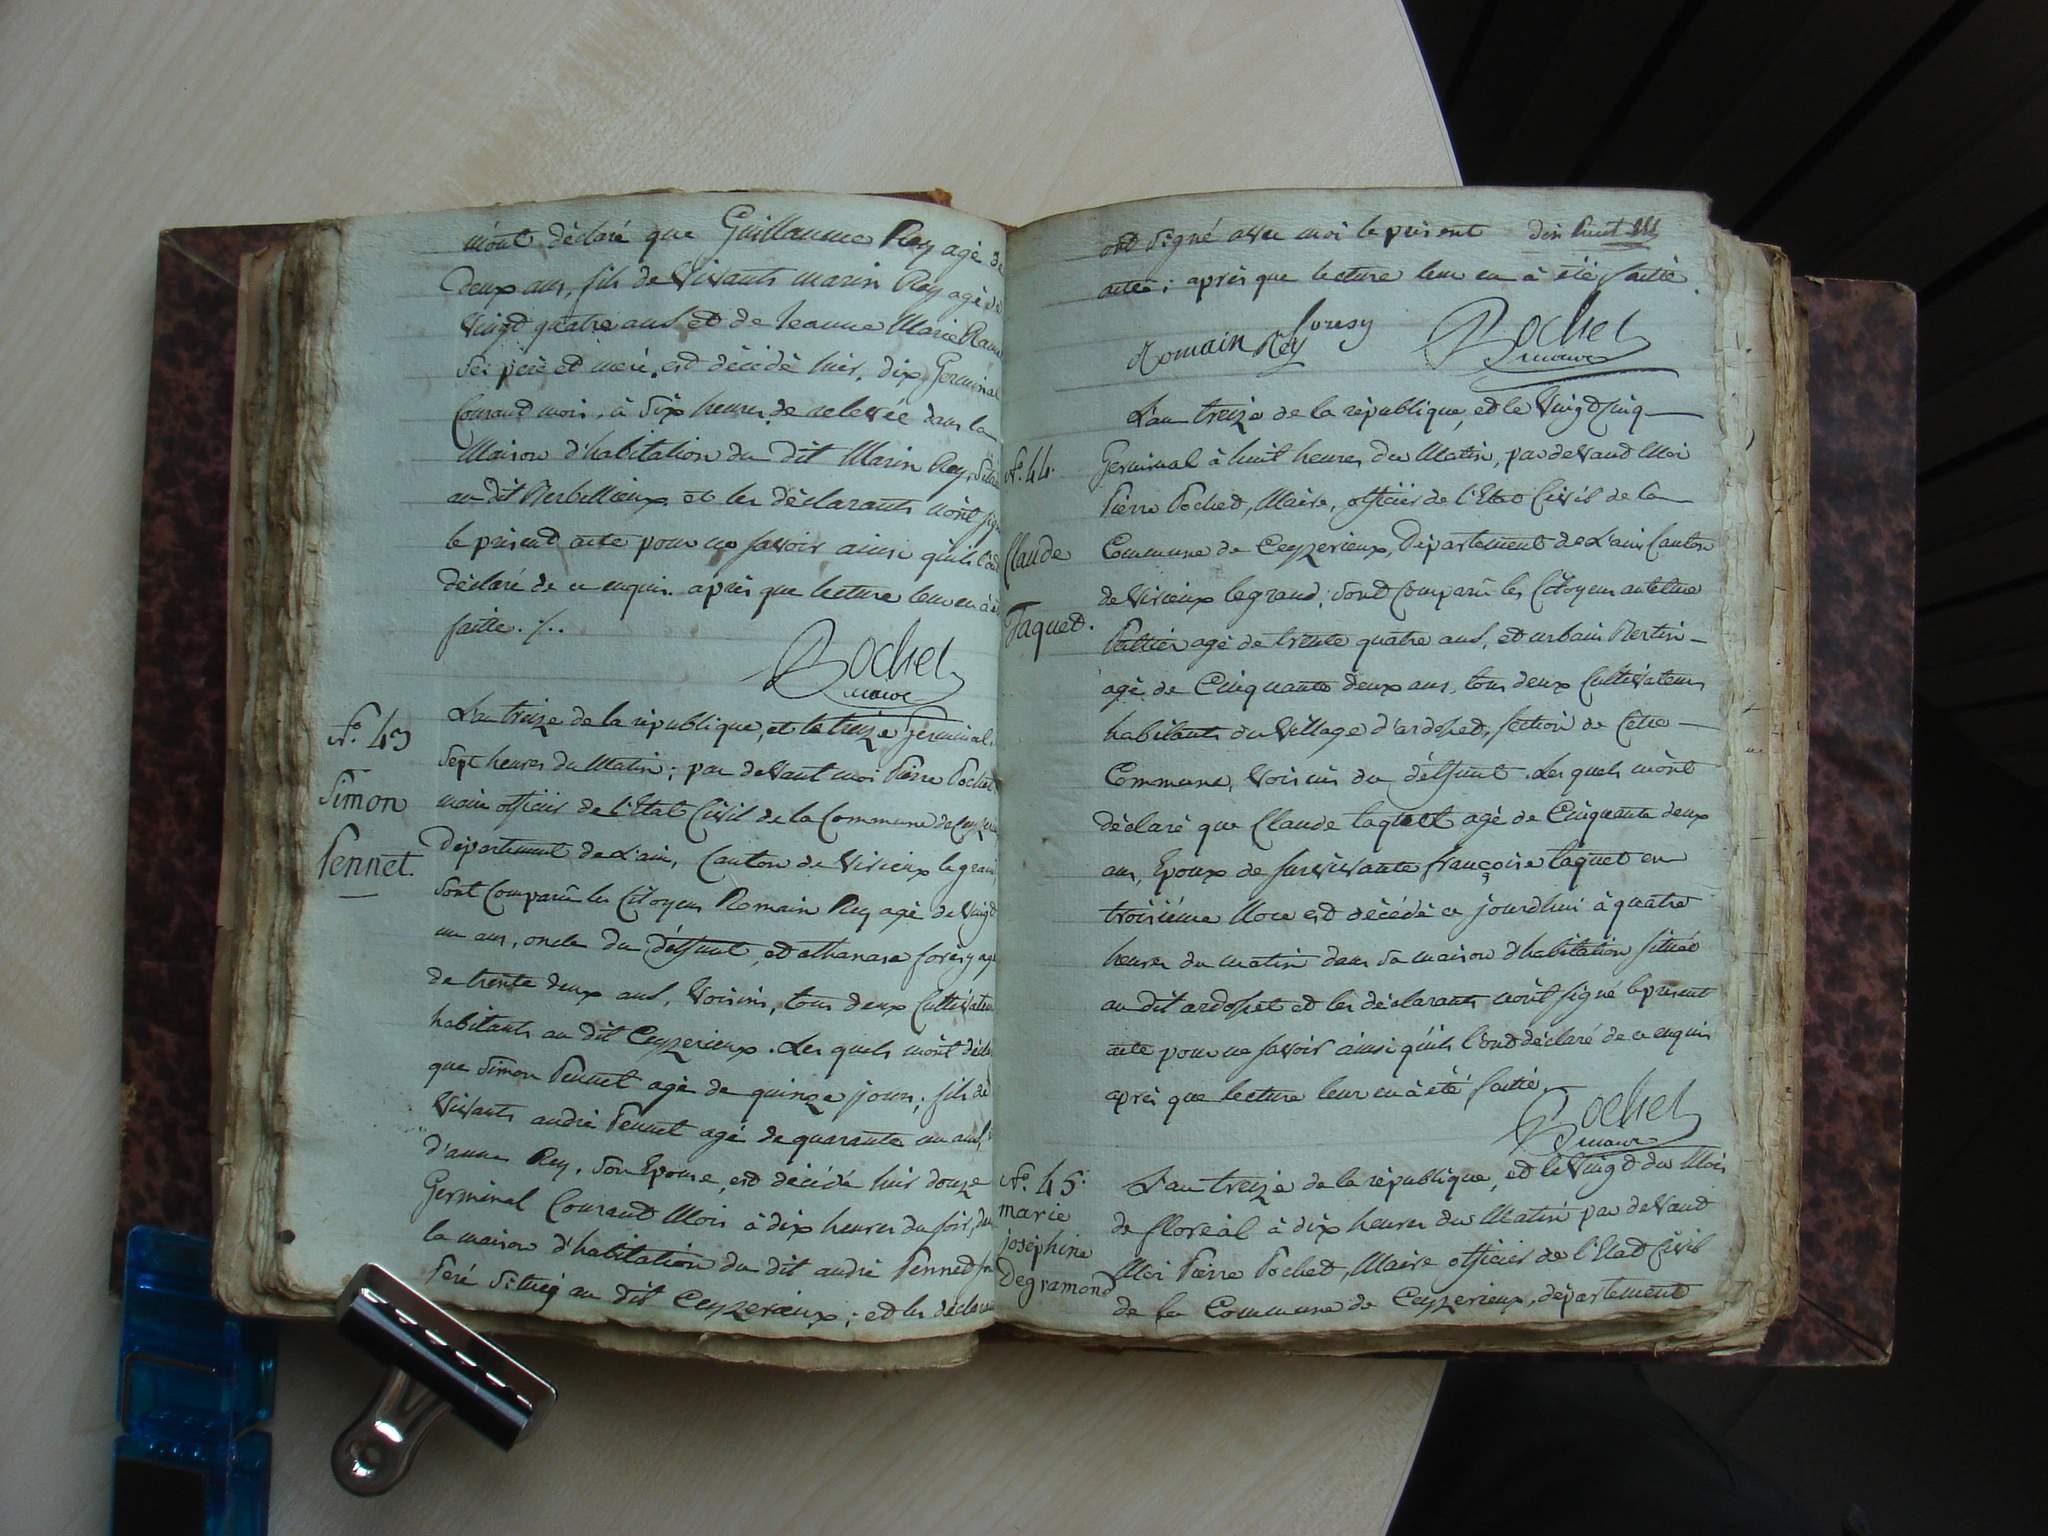 m'ont déclaré que Guillaume Rey agé de
deux ans, fils de vivants marin Rey agé de
vingt quatre ans et de Jeanne Marie
ses père et mere, est décédé hier, dix Germinal
Courant mois, à six heures de relevée dans la
Maison d'habitation du dit Marin Rey,
au dit et les déclarants n'ont signé
le présent acte pour ne savoir ainsi qu'ils l'ont
déclaré de ce enquis. après que lecture leur en à été
faitte. /..
Pochet
maire
N.º 43
Simon
Pennet.
L'an treize de la république, et le treize Germinal,
Sept heures du Matin; par devant moi Pierre Pochet,
maire officier de l'Etat Civil de la Commune de Ceyzerieux
département de L'ain, Canton de Virieux le grand,
sont Comparû les Citoyens Romain Rey agé de vingt
un ans, oncle du déffunt, et athanase forêsy agé
de trente deux ans, voisins, tous deux Cultivateurs
habitants au dit Ceyzerieux. Les quels m'ont déclaré
que Simon Pennet agé de quinze jours, fils de
vivants andré Pennet agé de quarante un ans,
d'anne Rey, son Epouse, est décédé hier douze
Germinal Courant Mois à dix heures du soir, dans
la maison d'habitation du dit andré Pennet son
Peré Situéé au dit Ceyzerieux; et les déclarants
ont signé avec moi le présent
acte; après que lecture leur en à été faitté.
Romain Rey foresy Pochet
maire
N.º 44.
Claude
Taquet.
L'an treize de la république, et le vingt Cinq
Germinal à huit heures du Matin, par devant Moi
Pierre Pochet, Maire, officier de l'Etat Civil de la
Commune de Ceyzerieux, Département de L'ain Canton
de Virieux le grand; sont Comparû les Citoyens antelme
agé de trente quatre ans, et urbain Bertin
agé de Cinquante deux ans, tous deux Cultivateurs
habitants du village d'ardosset, section de Cette
Commune, voisins du déffunt. Les quels m'ont
déclaré que Claude taquet agé de Cinquante deux
ans, Epoux de survivante françoise taquet en
troisiéme Noce est décédé ce jourdhui à quatre
heures du matin dans sa maison d'habitation situéé
au dit ardosset et les déclarants n'ont signé le présent
acte pour ne savoir ainsi qu'ils l'ont déclaré de ce enquis
après que lecture leur en à été faitté.
Pochet
maire
N.º 45.
marie
josephine
Degramond
L'an treize de la république, et le vingt du Mois
de floréal à dix heures du Matin par devant
Moi Pierre Pochet, Maire officier de l'Etat Civil
de la Commune de Ceyzerieux, département